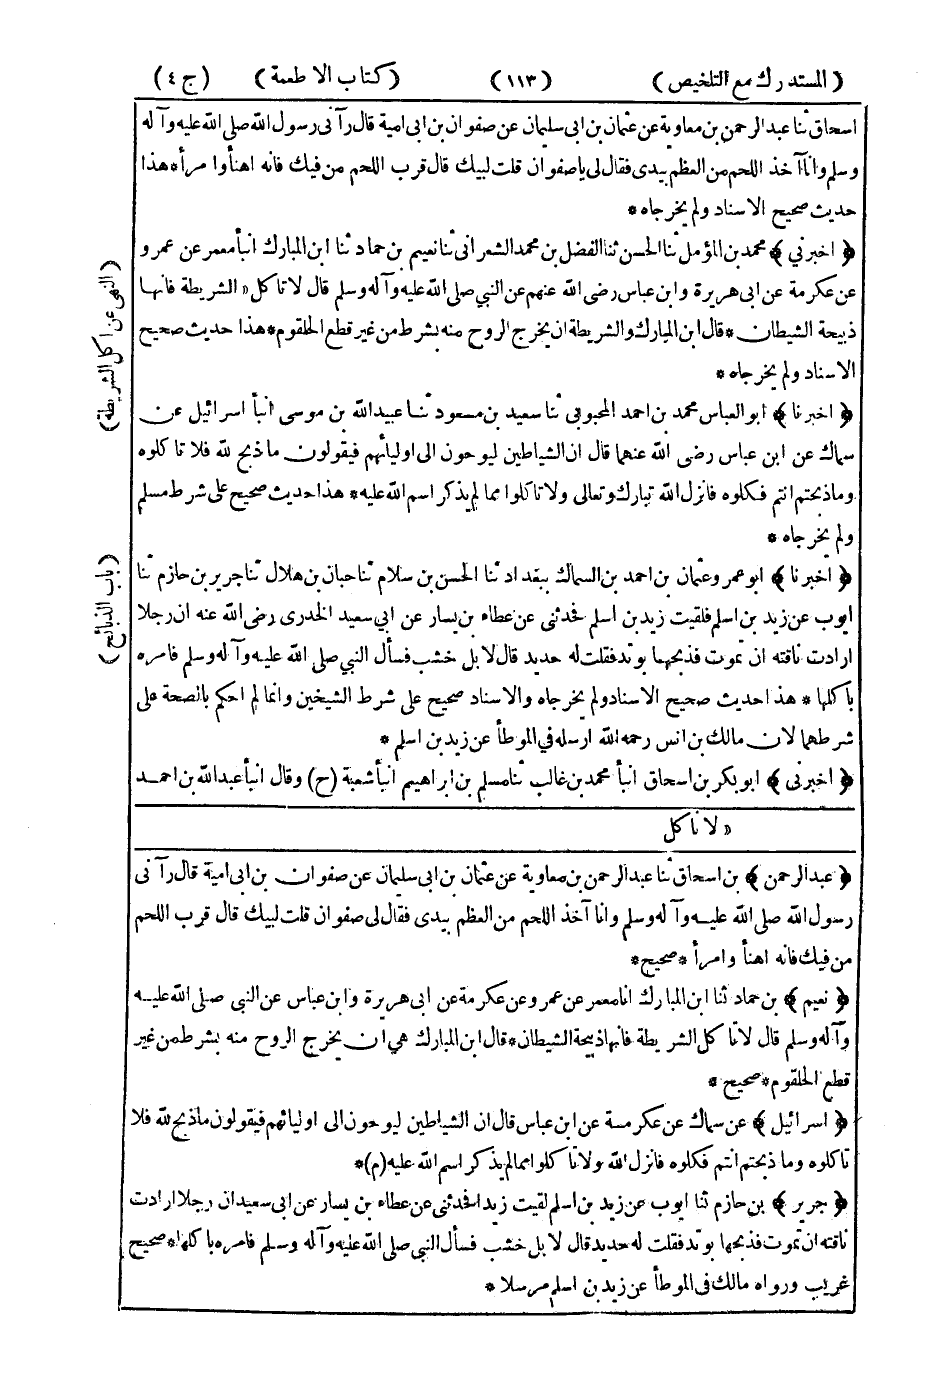 (المستدرك مع التلخيص) (١١٣) (كتاب الاطعمة) (ج ٤)
اسحاق ثنا عبد الرحمن بن معاوية عن عثمان بن ابى سليمان عن صفوان بن ابى امية قال رآنى رسول الله صلى الله عليه وآله
وسلم وانا آخذ اللحم من العظم بيدى فقال لى يا صفوان قلت لبيك قال قرب اللحم من فيك فانه اهنأ وامرأ * هذا
حديث صحيح الاسناد ولم يخرجاه *
﴿ اخبرني ﴾ محمد بن المؤمل ثنا الحسن ثنا الفضل بن محمد الشعرانى ثنا نعيم بن حماد ثنا ابن المبارك انبأ معمر عن عمرو
عن عكرمة عن ابى هريرة وابن عباس رضى الله عنهم عن النبي صلى الله عليه وآله وسلم قال لا تاكل« الشريطة فانها
ذبيحة الشيطان * قال ابن المبارك والشريطة ان يخرج الروح منه بشرط من غير قطع الحلقوم * هذا حديث صحيح
الاسناد ولم يخرجاه *
(النهى عن اكل الشريطة)
﴿ اخبرنا ﴾ ابو العباس محمد بن احمد المحبوبى ثنا سعيد بن مسعود ثنا عبيد الله بن موسى انبأ اسرائيل عن
سماك عن ابن عباس رضى الله عنهما قال ان الشياطين ليوحون الى اوليائهم فيقولون ما ذبح لله فلا تاكلوه
وما ذبحتم انتم فكلوه فانزل الله تبارك وتعالى ولا تاكلوا مما لم يذكر اسم الله عليه * هذا حديث صحيح على شرط مسلم
ولم يخرجاه *
(باب الذبائح)
﴿ اخبرنا ﴾ ابو عمرو عثمان بن احمد بن السماك ببغداد ثنا الحسن بن سلام ثنا حبان بن هلال ثنا جرير بن حازم ثنا
ايوب عن زيد بن اسلم فلقيت زيد بن اسلم فحدثنى عن عطاء بن يسار عن ابي سعيد الخدرى رضى الله عنه ان رجلا
ارادت ناقته ان تموت فذبحها بوتد فقلت له حديد قال لا بل خشب فسأل النبي صلى الله عليه وآله وسلم فامره
باكلها * هذا حديث صحيح الاسناد ولم يخرجاه والاسناد صحيح على شرط الشيخين وانما لم احكم بالصحة على
شرطهما لان مالك بن انس رحمه الله ارسله في الموطأ عن زيد بن اسلم *
﴿ اخبرنى ﴾ ابو بكر بن اسحاق انبأ محمد بن غالب ثنا مسلم بن ابراهيم انبأ شعبة (ح) وقال انبأ عبد الله بن احمد
« لا ناكل
﴿ عبد الرحمن ﴾ بن اسحاق ثنا عبد الرحمن بن معاوية عن عثمان بن ابى سليمان عن صفوان بن ابى امية قال رآنى
رسول الله صلى الله عليه وآله وسلم وانا آخذ اللحم من العظم بيدى فقال لى صفوان قلت لبيك قال قرب اللحم
من فيك فانه اهنأ وامرأ * صحيح *
﴿ نعيم ﴾ بن حماد ثنا ابن المبارك انا معمر عن عمرو عن عكرمة عن ابى هريرة وابن عباس عن النبى صلى الله عليه
وآله وسلم قال لا تاكل الشريطة فانها ذبيحة الشيطان * قال ابن المبارك هي ان يخرج الروح منه بشرط من غير
قطع الحلقوم * صحيح *
﴿ اسرائيل ﴾ عن سماك عن عكرمة عن ابن عباس قال ان الشياطين ليوحون الى اوليائهم فيقولون ما ذبح لله فلا
تاكلوه وما ذبحتم انتم فكلوه فانزل الله ولا تاكلوا مما لم يذكر اسم الله عليه (م) *
﴿ جرير ﴾ بن حازم ثنا ايوب عن زيد بن اسلم لقيت زيدا فحدثنى عن عطاء بن يسار عن ابى سعيد ان رجلا ارادت
ناقته ان تموت فذبحها بوتد فقلت له حديد قال لا بل خشب فسأل النبى صلى الله عليه وآله وسلم فامره باكلها * صحيح
غريب ورواه مالك فى الموطأ عن زيد بن اسلم مرسلا *